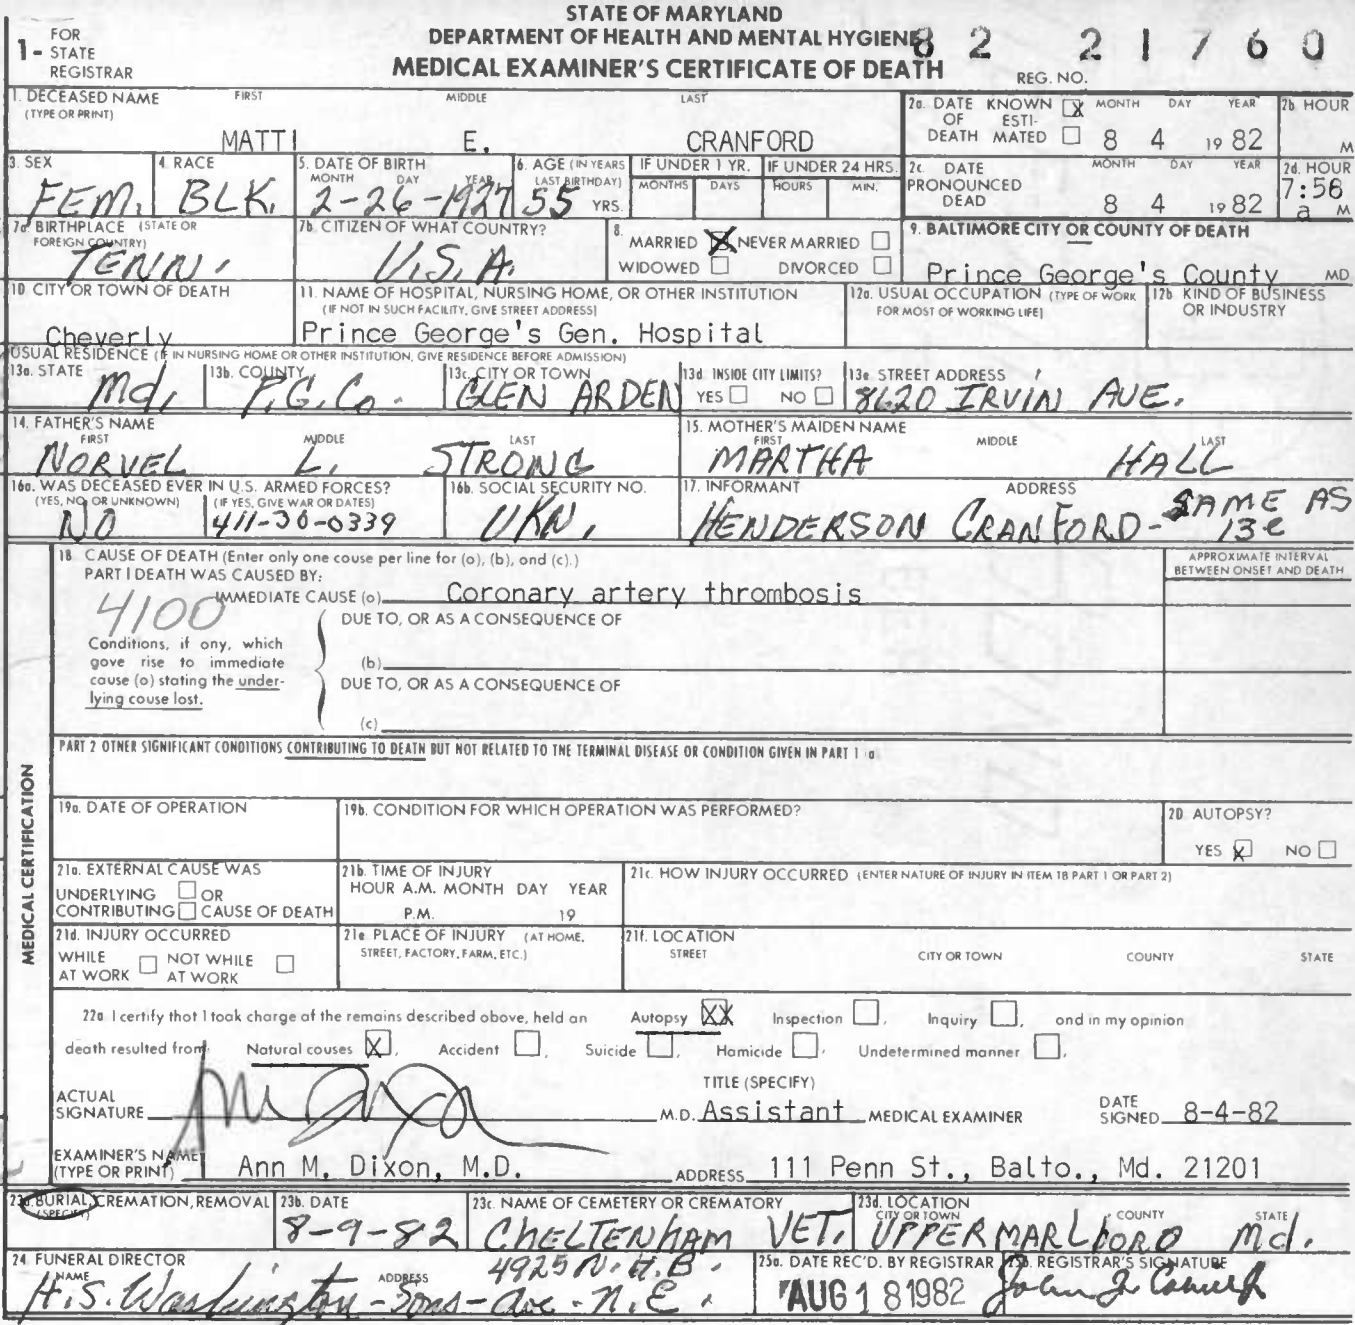 STATE OF MARYLAND
DEPARTMENT OF HEALTH AND MENTAL HYGIENE
MEDICAL EXAMINER'S CERTIFICATE OF DEATH
1- FOR STATE REGISTRAR
REG. NO. 82 21760
1. DECEASED NAME (TYPE OR PRINT) FIRST MIDDLE LAST
MATTI E. CRANFORD
2a. DATE OF DEATH KNOWN X ESTIMATED MONTH DAY YEAR 8 4 1982
2b. HOUR M
3. SEX FEM.
4. RACE BLK.
5. DATE OF BIRTH MONTH DAY YEAR 2-26-1927
6. AGE (IN YEARS LAST BIRTHDAY) 55 YRS.
IF UNDER 1 YR. MONTHS DAYS
IF UNDER 24 HRS. HOURS MIN.
2c. DATE PRONOUNCED DEAD MONTH DAY YEAR 8 4 1982
2d. HOUR 7:58 a M
7a. BIRTHPLACE (STATE OR FOREIGN COUNTRY) TENN.
7b. CITIZEN OF WHAT COUNTRY? U.S.A.
8. MARRIED X NEVER MARRIED WIDOWED DIVORCED
9. BALTIMORE CITY OR COUNTY OF DEATH
Prince George's County MD
10. CITY OR TOWN OF DEATH
Cheverly
11. NAME OF HOSPITAL, NURSING HOME, OR OTHER INSTITUTION
(IF NOT IN SUCH FACILITY, GIVE STREET ADDRESS)
Prince George's Gen. Hospital
12a. USUAL OCCUPATION (TYPE OF WORK FOR MOST OF WORKING LIFE)
12b. KIND OF BUSINESS OR INDUSTRY
USUAL RESIDENCE (IF IN NURSING HOME OR OTHER INSTITUTION, GIVE RESIDENCE BEFORE ADMISSION)
13a. STATE Md.
13b. COUNTY P.G.Co.
13c. CITY OR TOWN GLEN ARDEN
13d. INSIDE CITY LIMITS? YES NO
13e. STREET ADDRESS 8620 IRVIN AVE.
14. FATHER'S NAME FIRST MIDDLE LAST
NORVEL L. STRONG
15. MOTHER'S MAIDEN NAME FIRST MIDDLE LAST
MARTHA HALL
16a. WAS DECEASED EVER IN U.S. ARMED FORCES?
(YES, NO, OR UNKNOWN) (IF YES, GIVE WAR OR DATES)
NO 411-30-0339
16b. SOCIAL SECURITY NO. UKN.
17. INFORMANT ADDRESS
HENDERSON CRANFORD- SAME AS 13e
18. CAUSE OF DEATH (Enter only one cause per line for (a), (b), and (c).)
APPROXIMATE INTERVAL BETWEEN ONSET AND DEATH
PART I DEATH WAS CAUSED BY:
4100
IMMEDIATE CAUSE (a) Coronary artery thrombosis
DUE TO, OR AS A CONSEQUENCE OF
Conditions, if any, which gave rise to immediate cause (a) stating the underlying cause last.
(b)
DUE TO, OR AS A CONSEQUENCE OF
(c)
PART 2 OTHER SIGNIFICANT CONDITIONS CONTRIBUTING TO DEATH BUT NOT RELATED TO THE TERMINAL DISEASE OR CONDITION GIVEN IN PART 1 (a)
MEDICAL CERTIFICATION
19a. DATE OF OPERATION
19b. CONDITION FOR WHICH OPERATION WAS PERFORMED?
20. AUTOPSY? YES X NO
21a. EXTERNAL CAUSE WAS UNDERLYING OR CONTRIBUTING CAUSE OF DEATH
21b. TIME OF INJURY HOUR A.M. MONTH DAY YEAR P.M. 19
21c. HOW INJURY OCCURRED (ENTER NATURE OF INJURY IN ITEM 18 PART 1 OR PART 2)
21d. INJURY OCCURRED WHILE AT WORK NOT WHILE AT WORK
21e. PLACE OF INJURY (AT HOME, STREET, FACTORY, FARM, ETC.)
21f. LOCATION STREET CITY OR TOWN COUNTY STATE
22a. I certify that I took charge of the remains described above, held an Autopsy XX Inspection, Inquiry, and in my opinion
death resulted from: Natural causes X, Accident, Suicide, Homicide, Undetermined manner,
ACTUAL SIGNATURE M.D.
TITLE (SPECIFY) Assistant MEDICAL EXAMINER
DATE SIGNED 8-4-82
EXAMINER'S NAME (TYPE OR PRINT) Ann M. Dixon, M.D.
ADDRESS 111 Penn St., Balto., Md. 21201
23a. BURIAL, CREMATION, REMOVAL (SPECIFY)
23b. DATE 8-9-82
23c. NAME OF CEMETERY OR CREMATORY CHELTENHAM VET.
23d. LOCATION CITY OR TOWN COUNTY STATE
UPPER MARLBORO Md.
24. FUNERAL DIRECTOR NAME ADDRESS
4925 N.H.B.
H.S. Washington-Sons-Ave. N.E.
25a. DATE REC'D. BY REGISTRAR AUG 18 1982
25b. REGISTRAR'S SIGNATURE John J.